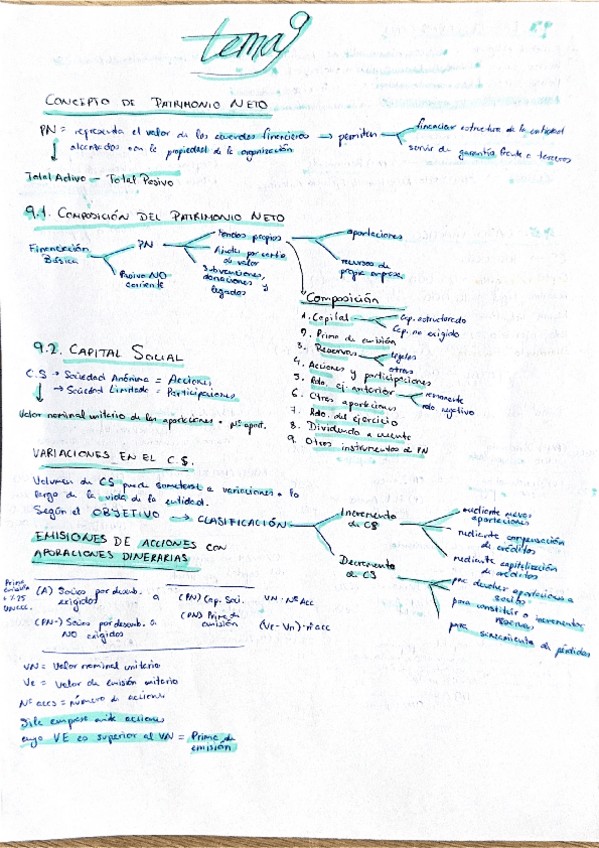 tema 9
CONCEPTO DE PATRIMONIO NETO
PN = representa el valor de los acuerdos financieros → permiten
financiar estructura de la entidad
servir de garantía frente a terceros
alcanzados con la propiedad de la organización
Total Activo — Total Pasivo
9.1. COMPOSICIÓN DEL PATRIMONIO NETO
Financiación Básica
PN
Pasivo NO corriente
Fondos propios
Ajustes por cambio de valor
Subvenciones, donaciones y legados
aportaciones
recursos de propia empresa
Composición
1. Capital
Cap. escriturado
Cap. no exigido
2. Prima de emisión
3. Reservas
legales
otras
4. Acciones y participaciones
5. Rdo. ej. anterior
remanente
rdo. negativo
6. Otras aportaciones
7. Rdo. del ejercicio
8. Dividendo a cuenta
9. Otros instrumentos de PN
9.2. CAPITAL SOCIAL
C.S → Sociedad Anónima = Acciones
→ Sociedad Limitada = Participaciones
Valor nominal unitario de las aportaciones · Nº aport.
VARIACIONES EN EL C.S.
Volumen de CS puede someterse a variaciones a lo
largo de la vida de la entidad.
Según el OBJETIVO → CLASIFICACIÓN
Incremento de CS
mediante nuevas aportaciones
mediante compensación de créditos
mediante capitalización de créditos
Decremento de CS
para devolver aportaciones a socios
para constituir o incrementar reservas
para saneamiento de pérdidas
EMISIONES DE ACCIONES CON
APORACIONES DINERARIAS
Prima emisión
(A) Socios por desemb. exigidos a (PN) Cap. Soci. VN · Nº Acc
(PN-) Socios por desemb. a NO exigidos (PN) Prima de emisión (Ve - Vn) · nº acc
VN = Valor nominal unitario
Ve = Valor de emisión unitario
Nº accs = número de acciones
Si la empresa emite acciones
cuyo VE es superior al VN = Prima de emisión